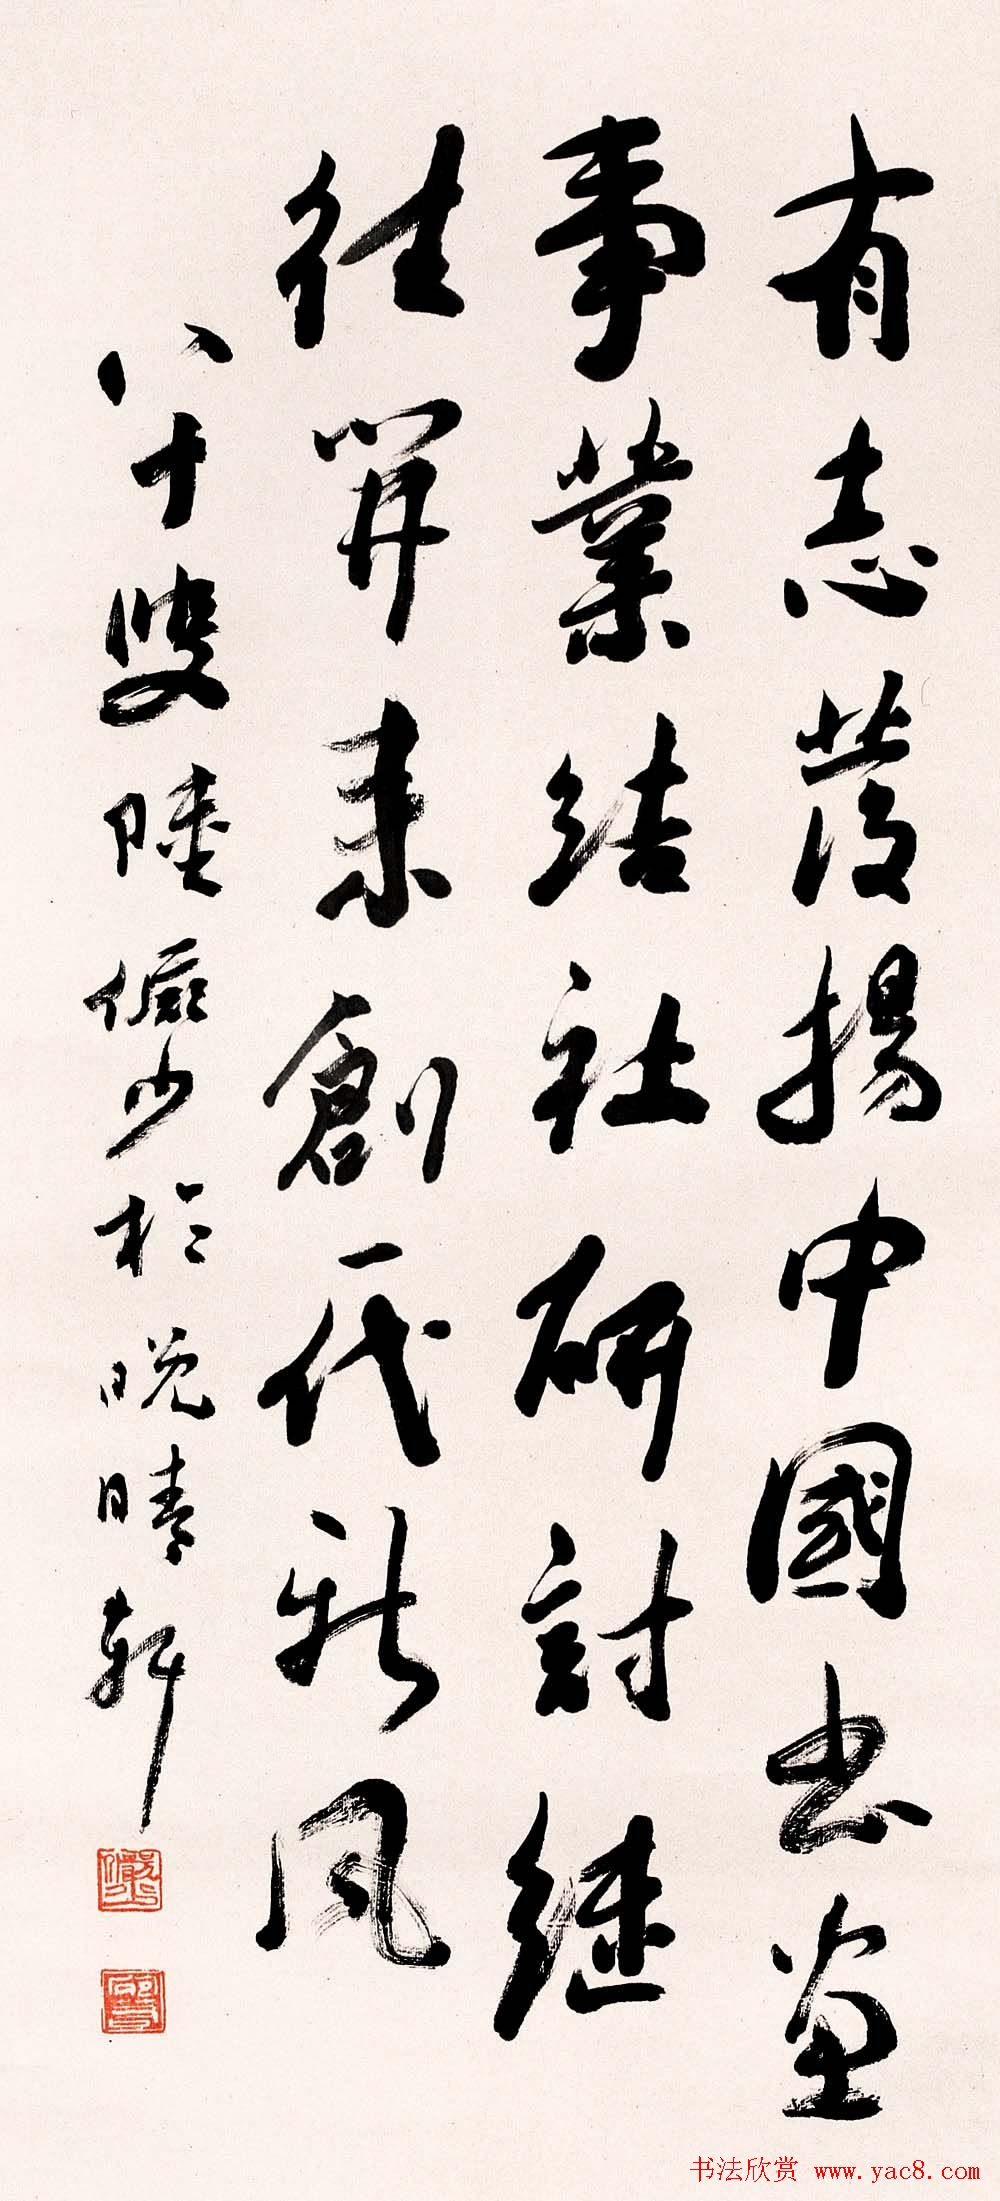 有志發揚中國书畫
事業结社研討继
往開来創一代新風
八十叟陸儼少於晚晴軒
书法欣赏 www.yac8.com